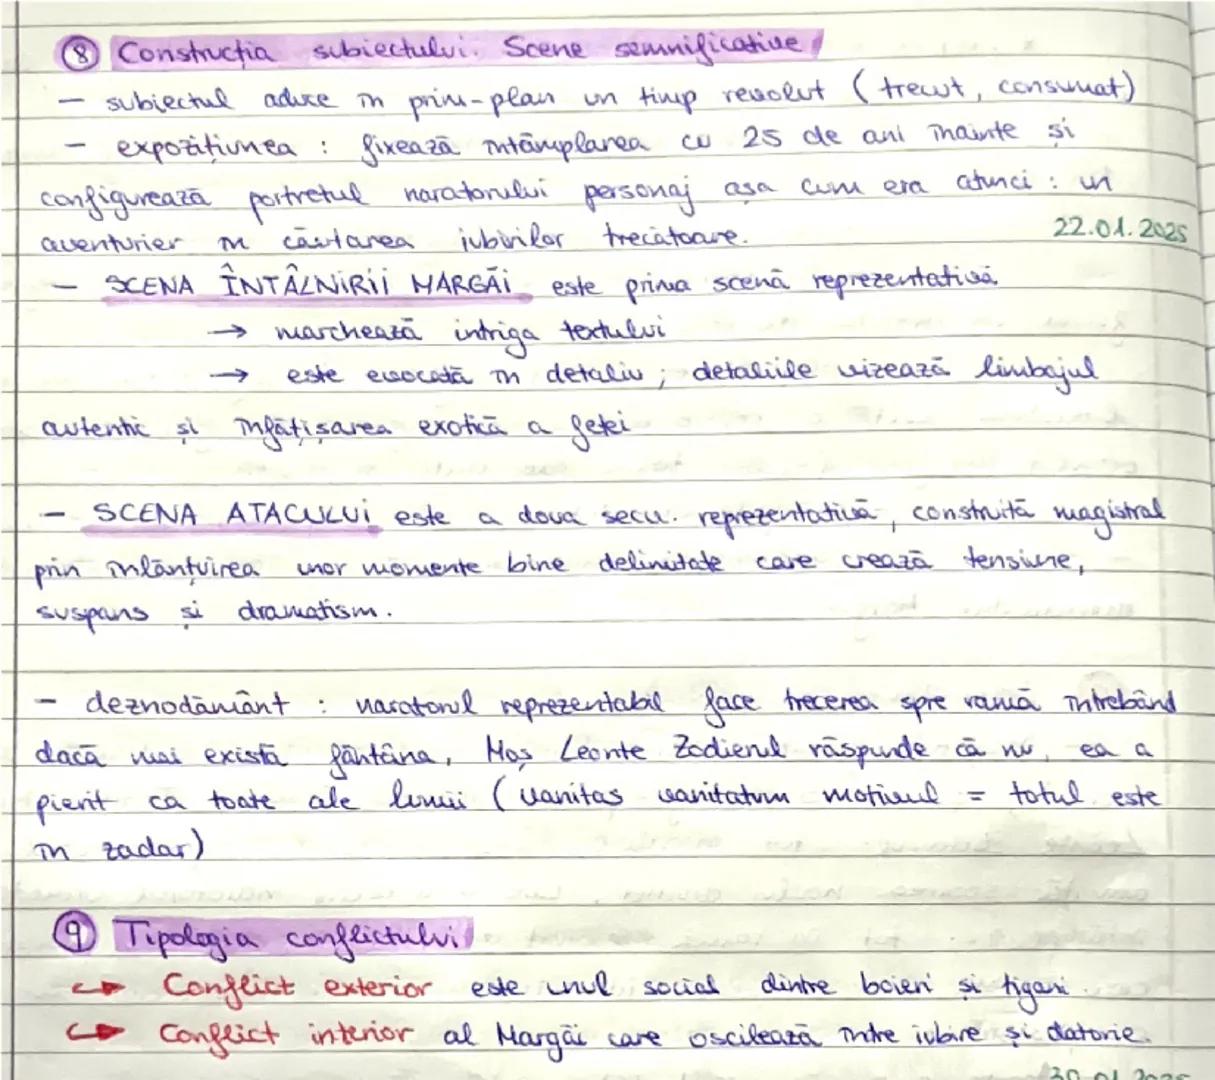 8 Construcția subiectului. Scene semnificative
- subiectul aduce în prim-plan un timp revolut (trecut, consumat)
- expozițiunea : fixează întâmplarea cu 25 de ani înainte și
configurează portretul naratorului personaj așa cum era atunci : un
aventurier în căutarea iubirilor trecătoare.
22.01.2025
- SCENA ÎNTÂLNIRII MARGĂI este prima scenă reprezentativă
→ marchează intriga textului
→ este evocată în detaliu ; detaliile vizează limbajul
autentic și înfățișarea exotică a fetei
- SCENA ATACULUI este a doua secv. reprezentativă, construită magistral
prin înlănțuirea unor momente bine delimitate care crează tensiune,
suspans și dramatism.
- deznodământ : naratorul reprezentabil face trecerea spre ramă întrebând
dacă mai există fântâna, Moș Leonte Zodierul răspunde că nu, ea a
pierit ca toate ale lumii (vanitas vanitatum motivul = totul este
în zadar)
9 Tipologia conflictului
→ Conflict exterior este unul social dintre boieri și țigani.
→ Conflict interior al Margăi care oscilează între iubire și datorie.